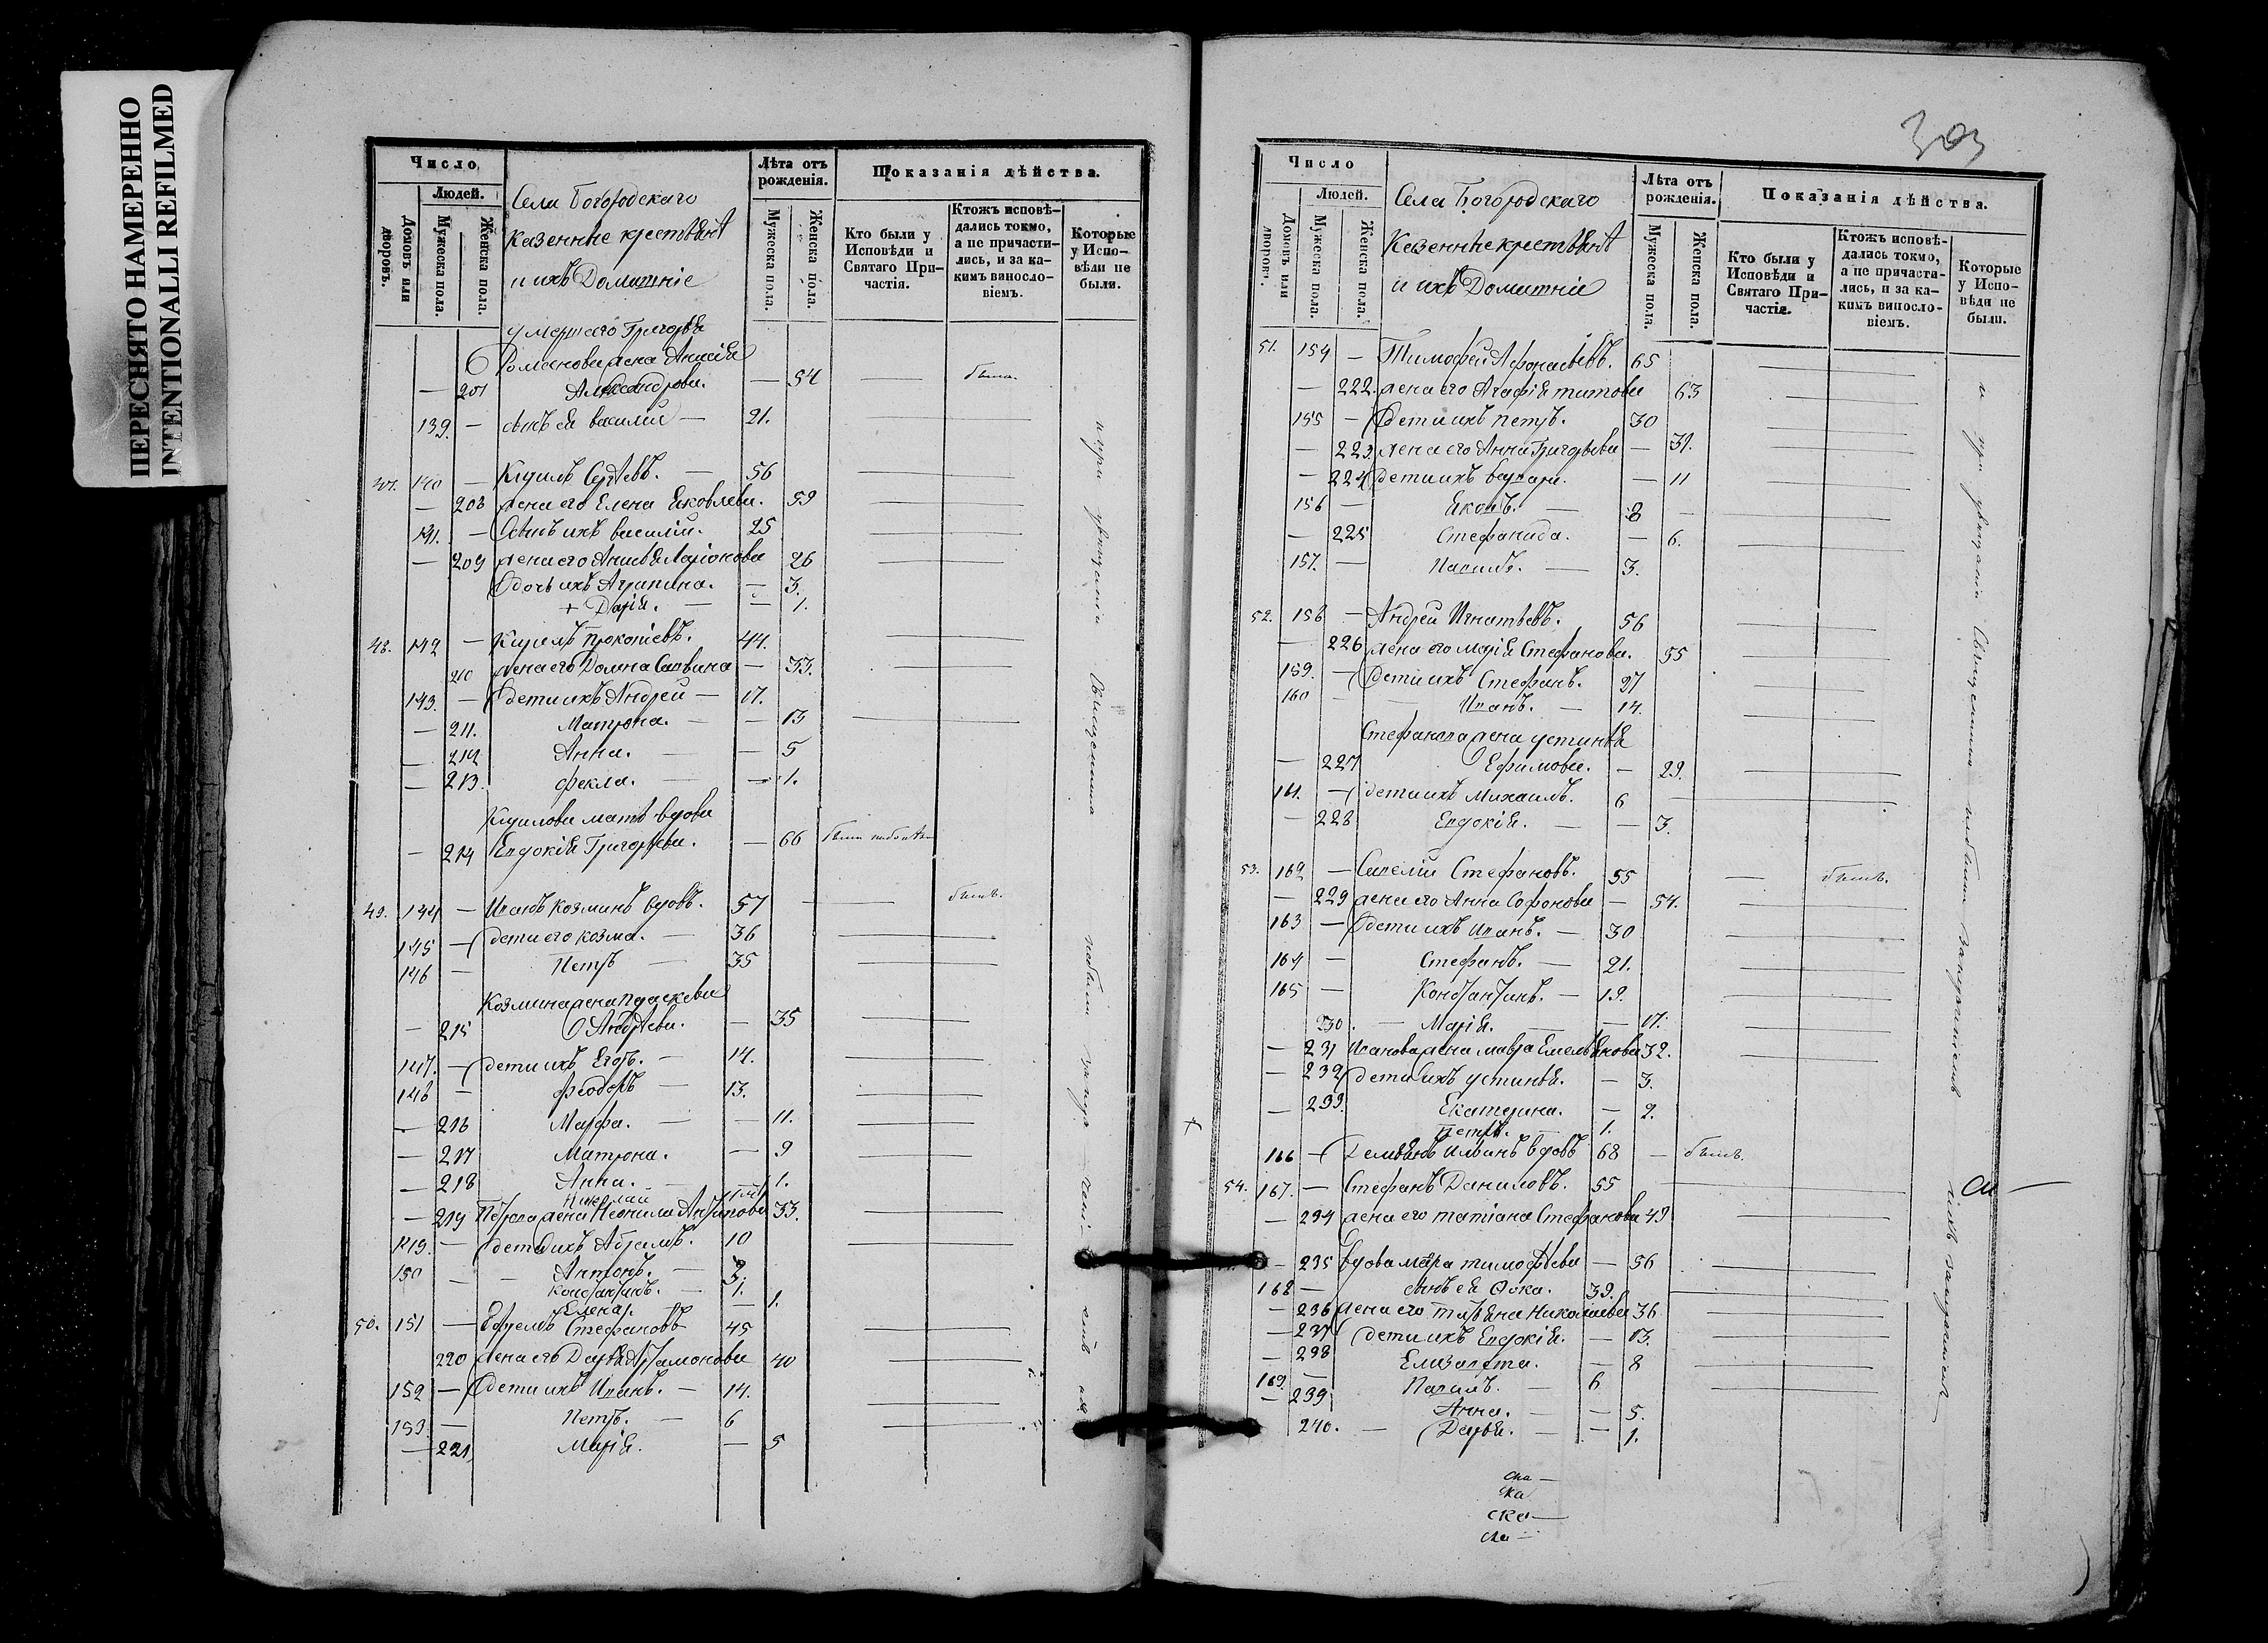 ПЕРЕСНЯТО НАМЕРЕННО
INTENTIONALLI REFILMED
Число
Людей.
Домовъ или дворовъ.
Мужеска пола.
Женска пола.
Села Богородскаго
казенные крестьяне
и ихъ Домашніе
Лѣта отъ рожденія.
Мужеска пола.
Женска пола.
Показанія дѣйства.
Кто были у Исповѣди и Святаго Причастія.
Ктожъ исповѣдались токмо, а не причастились, и за какимъ винословіемъ.
Которые у Исповѣди не были.
умершаго Григорья
Романова жена Анисія
201 Александрова. — 54 — была.
139. — сынъ ея василій — 21.
47. 140 — Кирилъ Сергѣевъ. — 56
— 208 жена его Елена Яковлева. 59
141. — Сынъ ихъ василій. 25
— 209 жена его Ларіонова 26
дочь ихъ Агрипина. — 3.
+ Дарія. — — 1.
48. 142 — Кирилъ Прокопіевъ. 44.
210 жена его Домна Саввина — 33.
143. — дети ихъ Андрей — 17.
— 211. Матрона. — — 13
— 212 Анна. — — 5
— 213. фекла. — — 1.
Кирилова мать вдова
— 214 Евдокія Григорьева. — 66
49. 144 — Иванъ Козминъ вдовъ. 57 — былъ.
145 — дети его козма. — 36
146 — Петръ — 35
Козмина жена Параскева
— 215 Андреева. — 35
147. — дети ихъ Егоръ. — 14.
148 — феодоръ — 13.
— 216 Марфа. — — 11.
— 217 Матрона. — 9
— 218 Анна. — 1.
Николай
— 219 Петрова жена Неонила Антипова 33.
149. — дети ихъ Абрамъ. 10
150 — — Антонъ. —
Константинъ. — 1.
Елена. — 1.
50. 151 — Ефремъ Стефановъ 45
220 жена его Дарья Артамонова 40
152 — дети ихъ Иванъ. — 14.
153. — Петръ. — 6
— 221 Марія. — 5
303
Число
Людей.
Домовъ или дворовъ.
Мужеска пола.
Женска пола.
Села Богородскаго
Казенные крестьяне
и ихъ Домашніе
Лѣта отъ рожденія.
Мужеска пола.
Женска пола.
Показанія дѣйства.
Кто были у Исповѣди и Святаго Причастія.
Ктожъ исповѣдались токмо, а не причастились, и за какимъ винословіемъ.
Которые у Исповѣди не были.
51. 154 — Тимофей Афонасьевъ. 65
— 222. жена его Агафія титова 63
155 — дети ихъ петръ. 30
— 223. жена его Анна Григорьева — 31.
— 224 дети ихъ варвара. — 11
156 — Яковъ. — 8 —
— 225 Стефанида. — 6.
157. — Павелъ. — 3.
52. 158 — Андрей Игнатьевъ. 56
— 226 жена его марія Стефанова. 55
159. — дети ихъ Стефанъ. 27
160 — Иванъ. — 14.
Стефанова жена устинья
— 227 Ефимова. — 29.
161. — дети ихъ Михаилъ. 6
— 228 Евдокія. — — 3.
53. 162 — Савелій Стефановъ. 55 — былъ.
— 229 жена его Анна Софонова — 54.
163 — дети ихъ Иванъ. — 30
164 — Стефанъ. — 21.
165 — Константинъ. — 19.
230. — Марія. — — 17.
— 231 Иванова жена мавра Емельянова 32.
— 232 дети ихъ устинья. — 3.
— 233. Екатерина. — 2.
Петръ. — 1.
166 — Демьянъ Ильинъ вдовъ 68 — былъ.
54. 167. — Стефанъ Даниловъ. 55
— 234 жена его татіана Стефанова 49
— 235 вдова тимофѣева — 56
168 — сынъ ея Фока. 39.
— 236 жена его Николаева 36
— 237 дети ихъ Евдокія. — 13.
— 238 Елизавета. — 8
169. — Павелъ. — 6
— 239 Анна. — — 5.
240. — Дарья. — — 1.